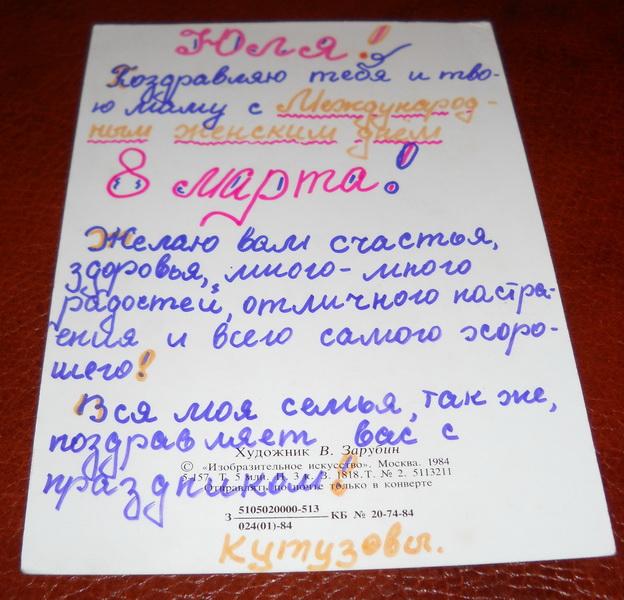 Юля!
Поздравляю тебя и тво-
ю маму с Международ-
ным женским днем
8 марта!
Желаю вам счастья,
здоровья, много-много
радостей, отличного настра-
ения и всего самого хоро-
шего!
Вся моя семья, так же,
поздравляет вас с
Художник В. Зарубин
© «Изобразительное искусство». Москва. 1984
5-157. Т. 5 млн. П. 3 к. З. 1818. Т. № 2. 5113211
праздником!
Отправлять по почте только в конверте
З 5105020000-513 КБ № 20-74-84
024(01)-84
Кутузовы.